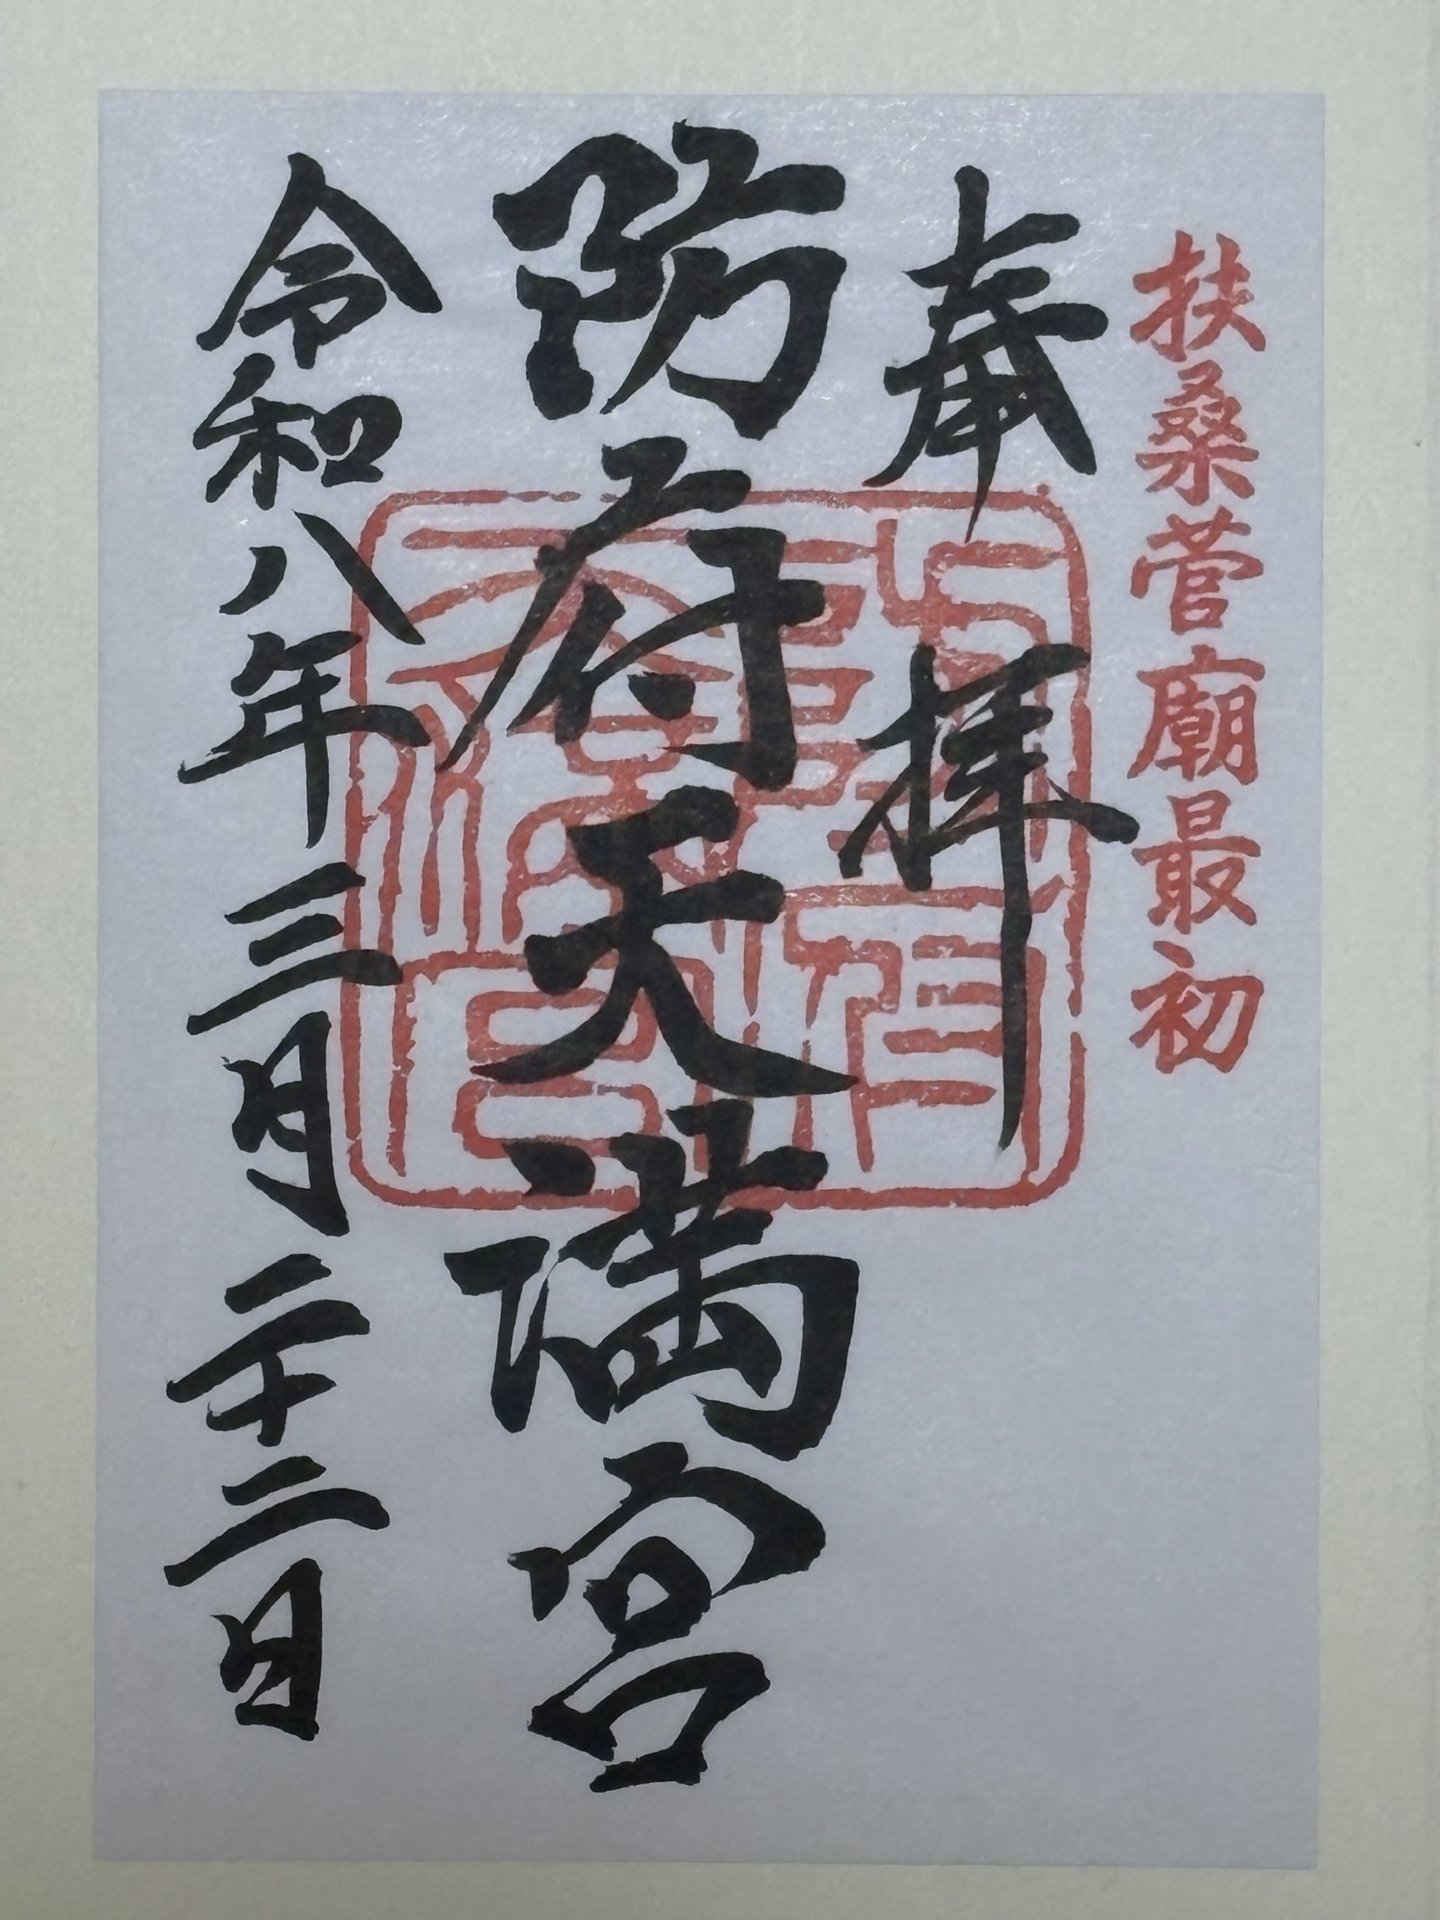 扶桑菅廟最初
奉拝
防府天満宮
令和八年三月二十二日